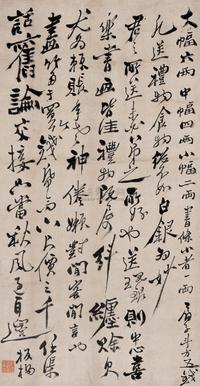 大幅六兩中幅四兩小幅二兩書條小者一兩扇子斗方五錢
凡送禮物食物總不如白銀為妙
君之所送未必弟之所好也送現銀則中心喜
樂書畫皆佳禮物既屬糾纏賒欠
尤為賴賬年老神倦懶對閒客閒言也
畫竹多于買竹錢紙高六尺價三千任渠
話舊論交接只當秋風過耳邊 板橋